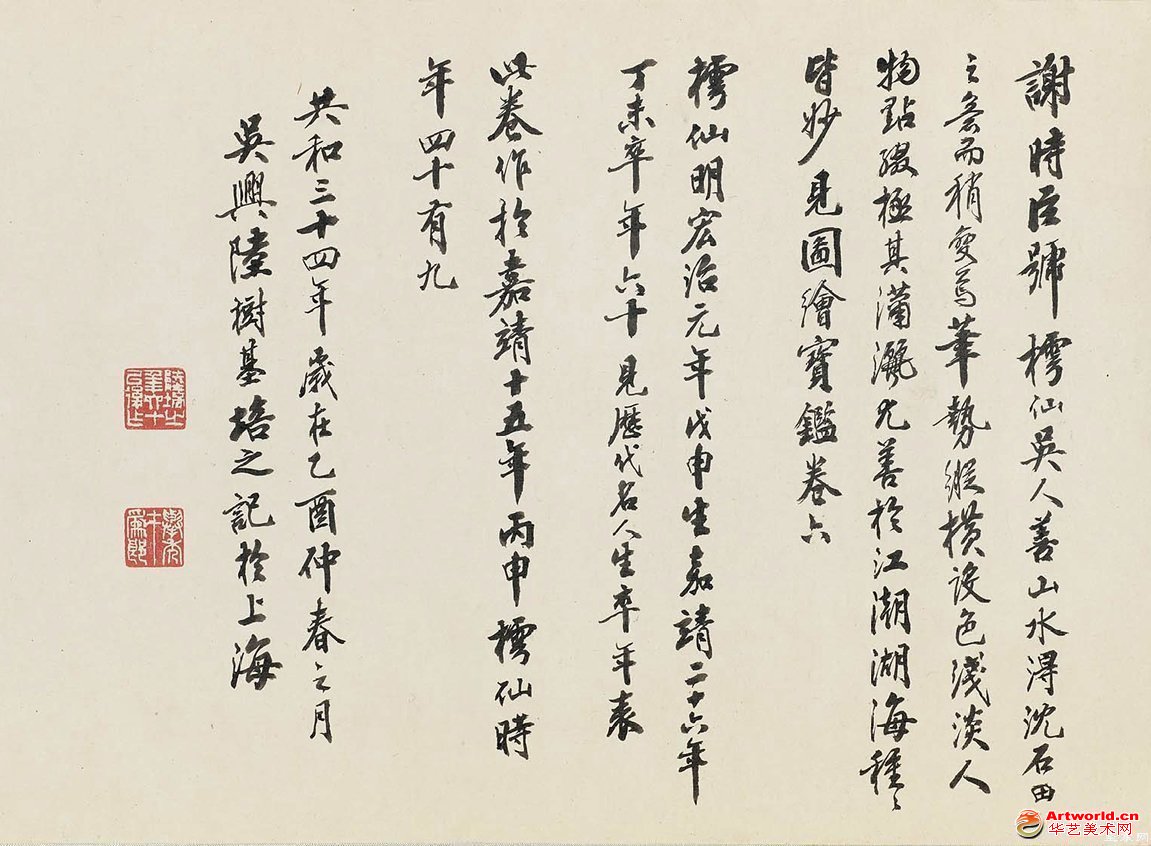 謝時臣號樗仙吳人善山水得沈石田
之意而稍變焉筆勢縱橫設色淺淡人
物點綴極其瀟灑尤善於江潮湖海種〻
皆妙見圖繪寶鑑卷六
樗仙明宏治元年戊申生嘉靖二十六年
丁未卒年六十見歷代名人生卒年表
此卷作於嘉靖十五年丙申樗仙時
年四十有九
共和三十四年歲在乙酉仲春之月
吳興陸樹基培之記於上海
Artworld.cn
华艺美术网